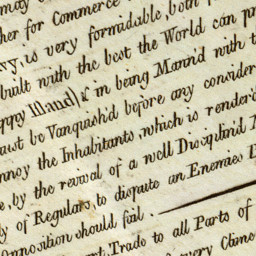 may
her for Commerce
vy, is very formidable, both
built with the best the World can
ppy Island) if in being Mann'd with
ust be Vanquish'd before any consider
nnoy the Inhabitants, which is render'd
e, by the revival of a well Disciplin'd
y of Regulars, to dispute an Enemies
Opposition should fail.
Trade to all Parts of
every Clime